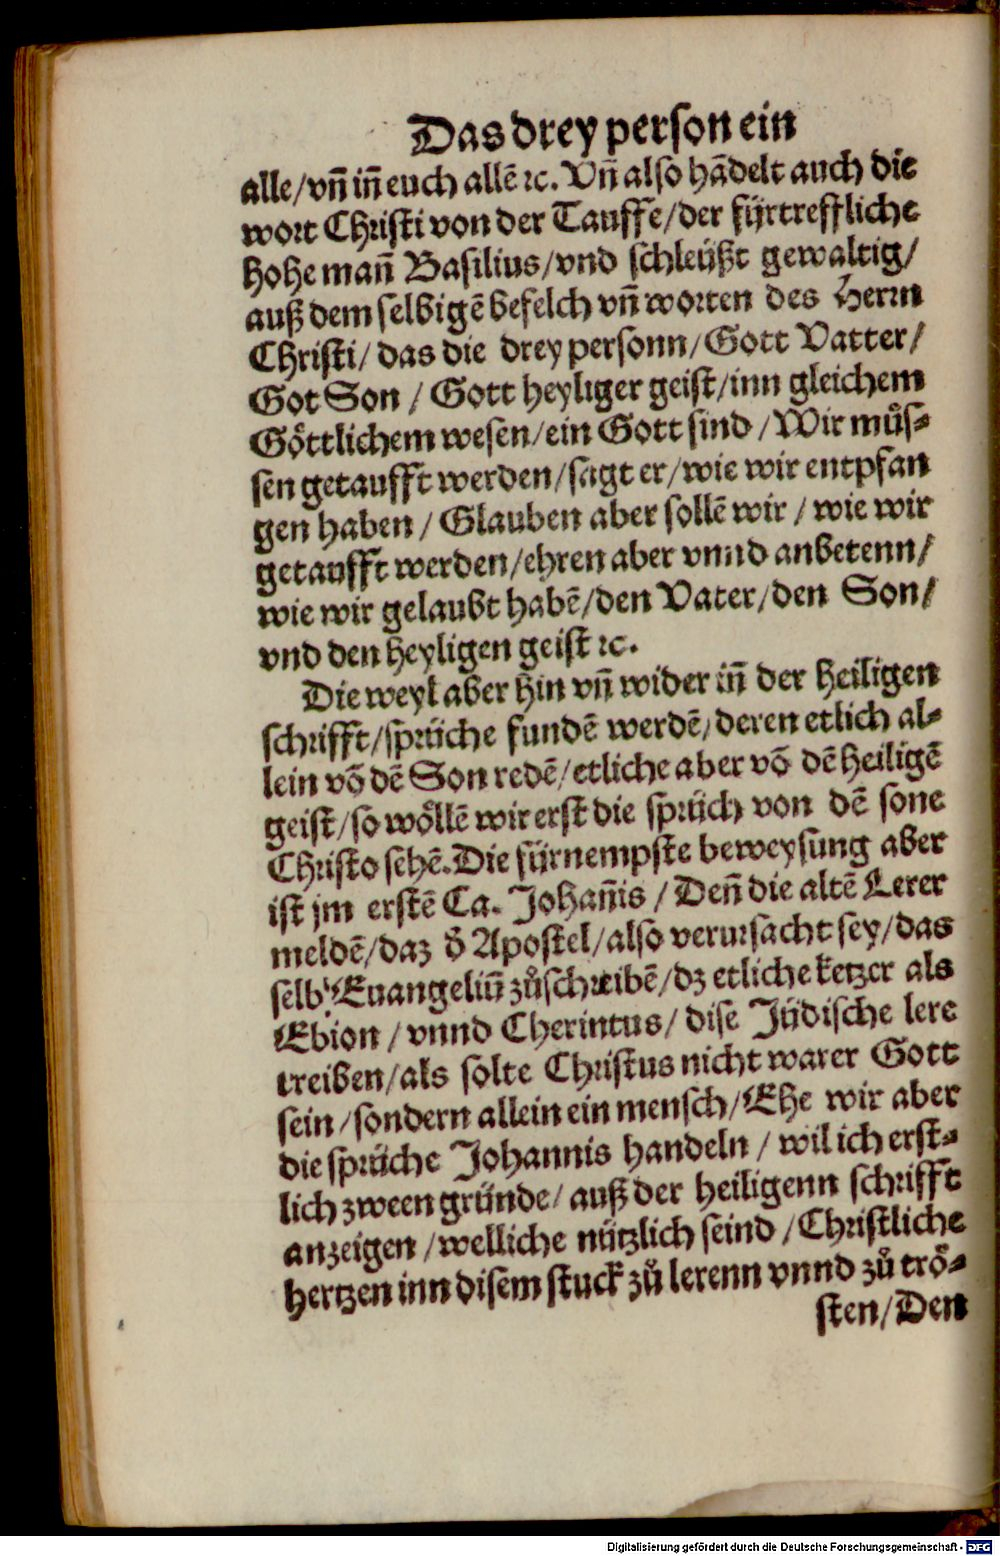 Das drey person ein
alle/vñ iñ euch allē ꝛc. Vñ also hādelt auch die
wort Christi von der Tauffe/der fürtreffliche
hohe mañ Basilius/vnd schleüßt gewaltig/
auß dem selbigē befelch vñ worten des Herrn
Christi/ das die drey personn/Gott Vatter/
Got Son / Gott heyliger geist/inn gleichem
Göttlichem wesen/ein Gott sind /Wir müs-
sen getaufft werden/sagt er/wie wir entpfan
gen haben / Glauben aber sollē wir / wie wir
getaufft werden/ehren aber vnnd anbetenn/
wie wir gelaubt habē/den Vater/den Son/
vnd den heyligen geist ꝛc.
Die weyl aber hin vñ wider iñ der heiligen
schrifft/sprüche fundē werdē/deren etlich al-
lein vō dē Son redē/etliche aber vō dē heiligē
geist/so wöllē wir erst die sprüch von dē sone
Christo sehē. Die fürnempste beweysung aber
ist jm erstē Ca. Johañis / Deñ die altē Lerer
meldē/daz d̄ Apostel/also verursacht sey/das
selb Euangeliū zůschreibē/dz etliche ketzer als
Ebion / vnnd Cherintus/ dise Jüdische lere
treiben/als solte Christus nicht warer Gott
sein /sondern allein ein mensch/Ehe wir aber
die sprüche Johannis handeln / wil ich erst-
lich zween gründe/ auß der heiligenn schrifft
anzeigen /welliche nützlich seind /Christliche
hertzen inn disem stuck zů lerenn vnnd zů trö-
sten/Den
Digitalisierung gefördert durch die Deutsche Forschungsgemeinschaft - DFG